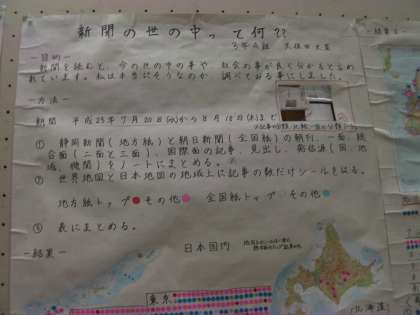 新聞の世の中って何??
3年A組
ー目的ー
新聞を読むと、今の世の中の事や 社会の事が良く分かると言わ
れています。私は本当にそうなのか 調べてみる事にしました。
ー方法ー
期間 平成25年7月20日 から8月18日 まで
① 静岡新聞(地方紙)と朝日新聞(全国紙)の朝刊、一面、総
合面(二面と三面)、国際面の記事、見出し、発信源(国、地
域、機関)をノートにまとめる。
② 世界地図と日本地図の地域上に記事の数だけシールをはる。
地方紙トップ その他 全国紙トップ その他
③ 表にまとめる。
ー結果ー
日本国内
東京
北海道
ー結果